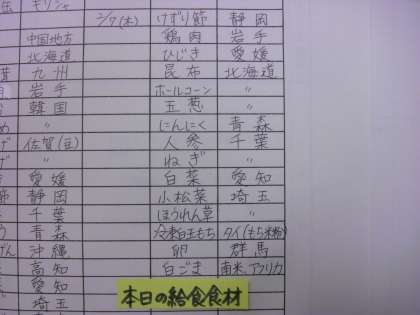 ギリシャ
2/7(木) けずり節 静岡
中国地方 鶏肉 岩手
北海道 ひじき 愛媛
九州 昆布 北海道
岩手 ホールコーン 〃
韓国 玉葱 〃
〃 にんにく 青森
佐賀(豆) 人参 千葉
〃 ねぎ 〃
愛媛 白菜 愛知
静岡 小松菜 埼玉
千葉 ほうれん草 〃
青森 冷凍白玉もち タイ(もち米粉)
沖縄 卵 群馬
高知 白ごま 南米、アフリカ
愛知
埼玉
本日の給食食材